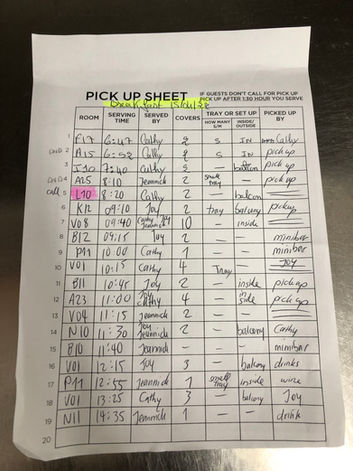 PICK UP SHEET
IF GUESTS DON'T CALL FOR PICK UP
PICK UP AFTER 1:30 HOUR YOU SERVE
Breakfast
ROOM SERVING TIME SERVED BY COVERS TRAY OR SET UP PICKED UP BY
HOW MANY S/M INSIDE/OUTSIDE
1 A17 6:47 Cathy 2 S IN Cathy
2 A15 6:52 Cathy S IN pick up
3 J10 7:40 Cathy 2 – pick up
4 A25 8:10 Jeannick 2 small tray –
call 5 L10 8:20 Cathy 2 – balcon
6 K12 09:10 Joy 2 tray balcony pickup
7 V08 09:40 Cathy Joy Jeannick 10 – inside
8 B12 09:15 Joy 2 – – minibar
9 P11 10:00 Cathy 1 – – minibar
10 V01 10:15 Cathy 4 Tray – Joy
11 B11 10:45 Joy 2 – inside pick up
12 A23 11:00 Joy Cathy 4 – inside pick up
13 V04 11:15 Jeannick 2 – –
14 N10 11:30 Joy Jeannick 2 – balcony Cathy
15 B10 11:40 Jeannick – – – minibar
16 V01 12:15 Joy 3 – balcony drinks
17 P11 12:55 Jeannick 1 small tray inside wine
18 V01 13:25 Cathy 3 balcony Joy
19 N11 14:35 Jeannick 1 – – drink
20